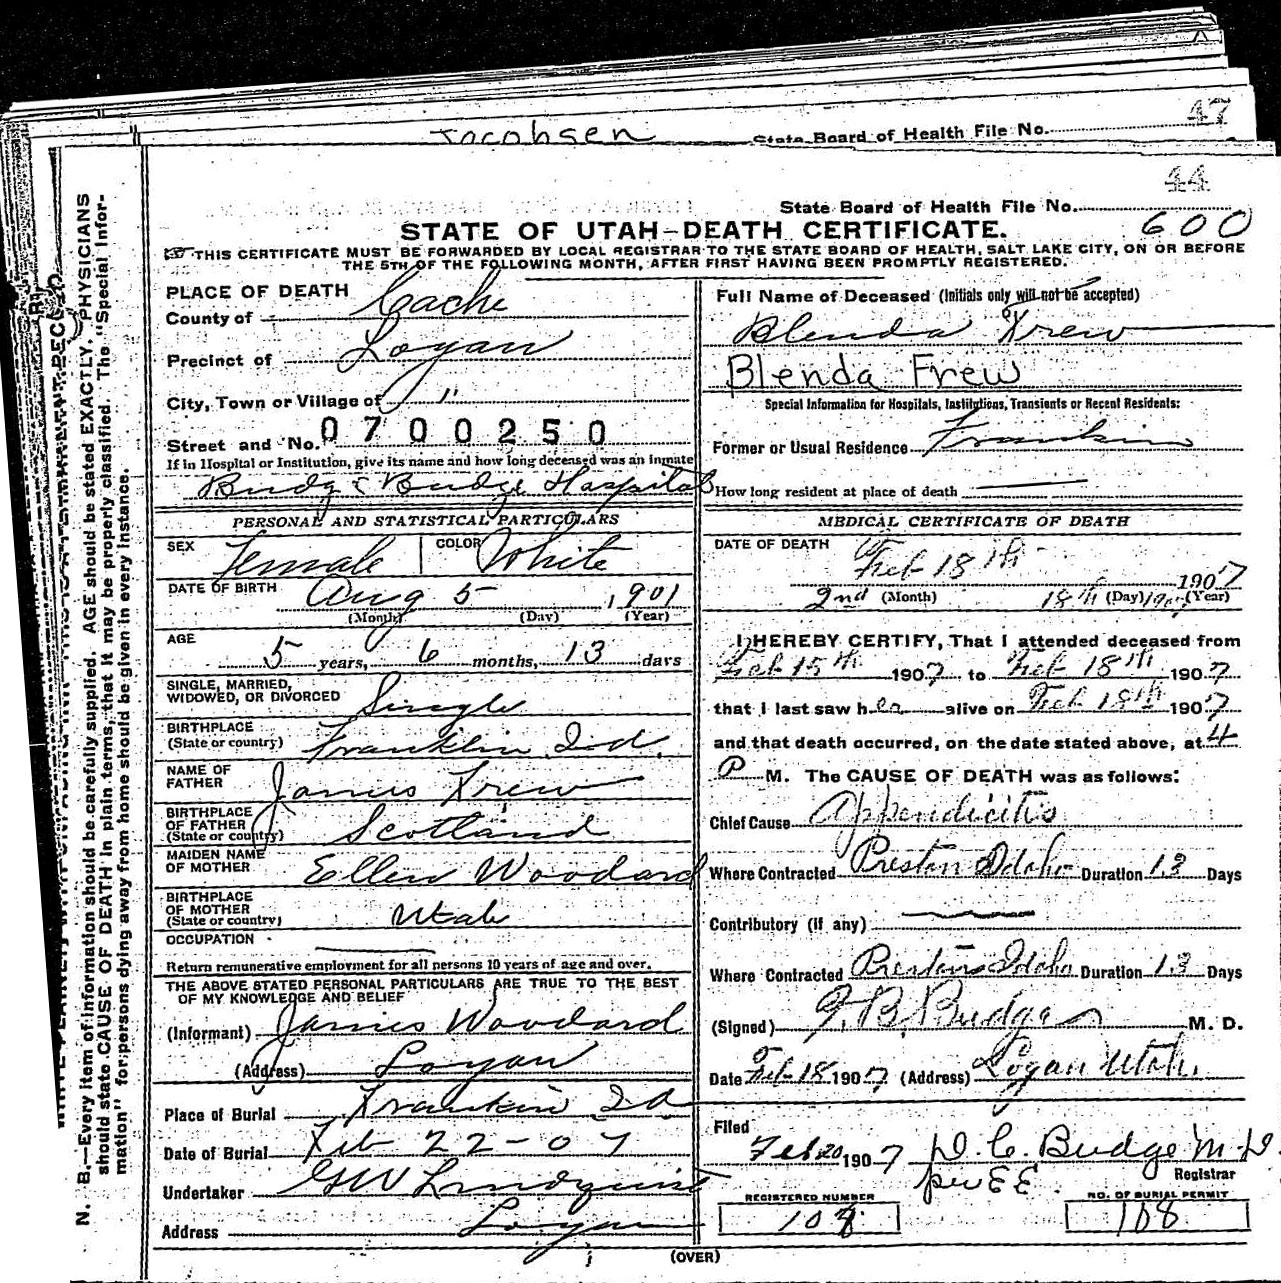 47
Jacobsen State Board of Health File No.
44
State Board of Health File No.
600
STATE OF UTAH—DEATH CERTIFICATE.
☞ THIS CERTIFICATE MUST BE FORWARDED BY LOCAL REGISTRAR TO THE STATE BOARD OF HEALTH, SALT LAKE CITY, ON OR BEFORE
THE 5TH OF THE FOLLOWING MONTH, AFTER FIRST HAVING BEEN PROMPTLY REGISTERED.
N. B.—Every item of information should be carefully supplied. AGE should be stated EXACTLY. PHYSICIANS
should state CAUSE OF DEATH in plain terms, that it may be properly classified. The "Special Infor-
mation" for persons dying away from home should be given in every instance.
PLACE OF DEATH
County of Cache
Precinct of Logan
City, Town or Village of "
Street and No. 0700250
If in Hospital or Institution, give its name and how long deceased was an inmate
Budge & Budge Hospital
PERSONAL AND STATISTICAL PARTICULARS
SEX Female COLOR White
DATE OF BIRTH Aug 5 1901
(Month) (Day) (Year)
AGE
5 years, 6 months, 13 days
SINGLE, MARRIED,
WIDOWED, OR DIVORCED Single
BIRTHPLACE
(State or country) Franklin Id.
NAME OF
FATHER James Frew
BIRTHPLACE
OF FATHER
(State or country) Scotland
MAIDEN NAME
OF MOTHER Ellen Woodard
BIRTHPLACE
OF MOTHER
(State or country) Utah
OCCUPATION
Return remunerative employment for all persons 10 years of age and over.
THE ABOVE STATED PERSONAL PARTICULARS ARE TRUE TO THE BEST
OF MY KNOWLEDGE AND BELIEF
(Informant) James Woodard
(Address) Logan
Place of Burial Franklin Id
Date of Burial Feb 22-07
Undertaker GW Lindquist
Address Logan
Full Name of Deceased (Initials only will not be accepted)
Blenda Frew
Blenda Frew
Special Information for Hospitals, Institutions, Transients or Recent Residents:
Former or Usual Residence Franklin
How long resident at place of death
MEDICAL CERTIFICATE OF DEATH
DATE OF DEATH
Feb 18th 1907
2nd (Month) 18th (Day) 1907 (Year)
I HEREBY CERTIFY, That I attended deceased from
Feb 15th 1907 to Feb 18th 1907
that I last saw her alive on Feb 18th 1907
and that death occurred, on the date stated above, at 4
P M. The CAUSE OF DEATH was as follows:
Chief Cause Appendicitis
Where Contracted Preston Idaho Duration 13 Days
Contributory (if any)
Where Contracted Preston Idaho Duration 13 Days
(Signed) Budge M. D.
Date Feb 18 1907 (Address) Logan Utah.
Filed
Feb 20 1907 D. C. Budge M.D.
per EE. Registrar
REGISTERED NUMBER NO. OF BURIAL PERMIT
108 108
(OVER)